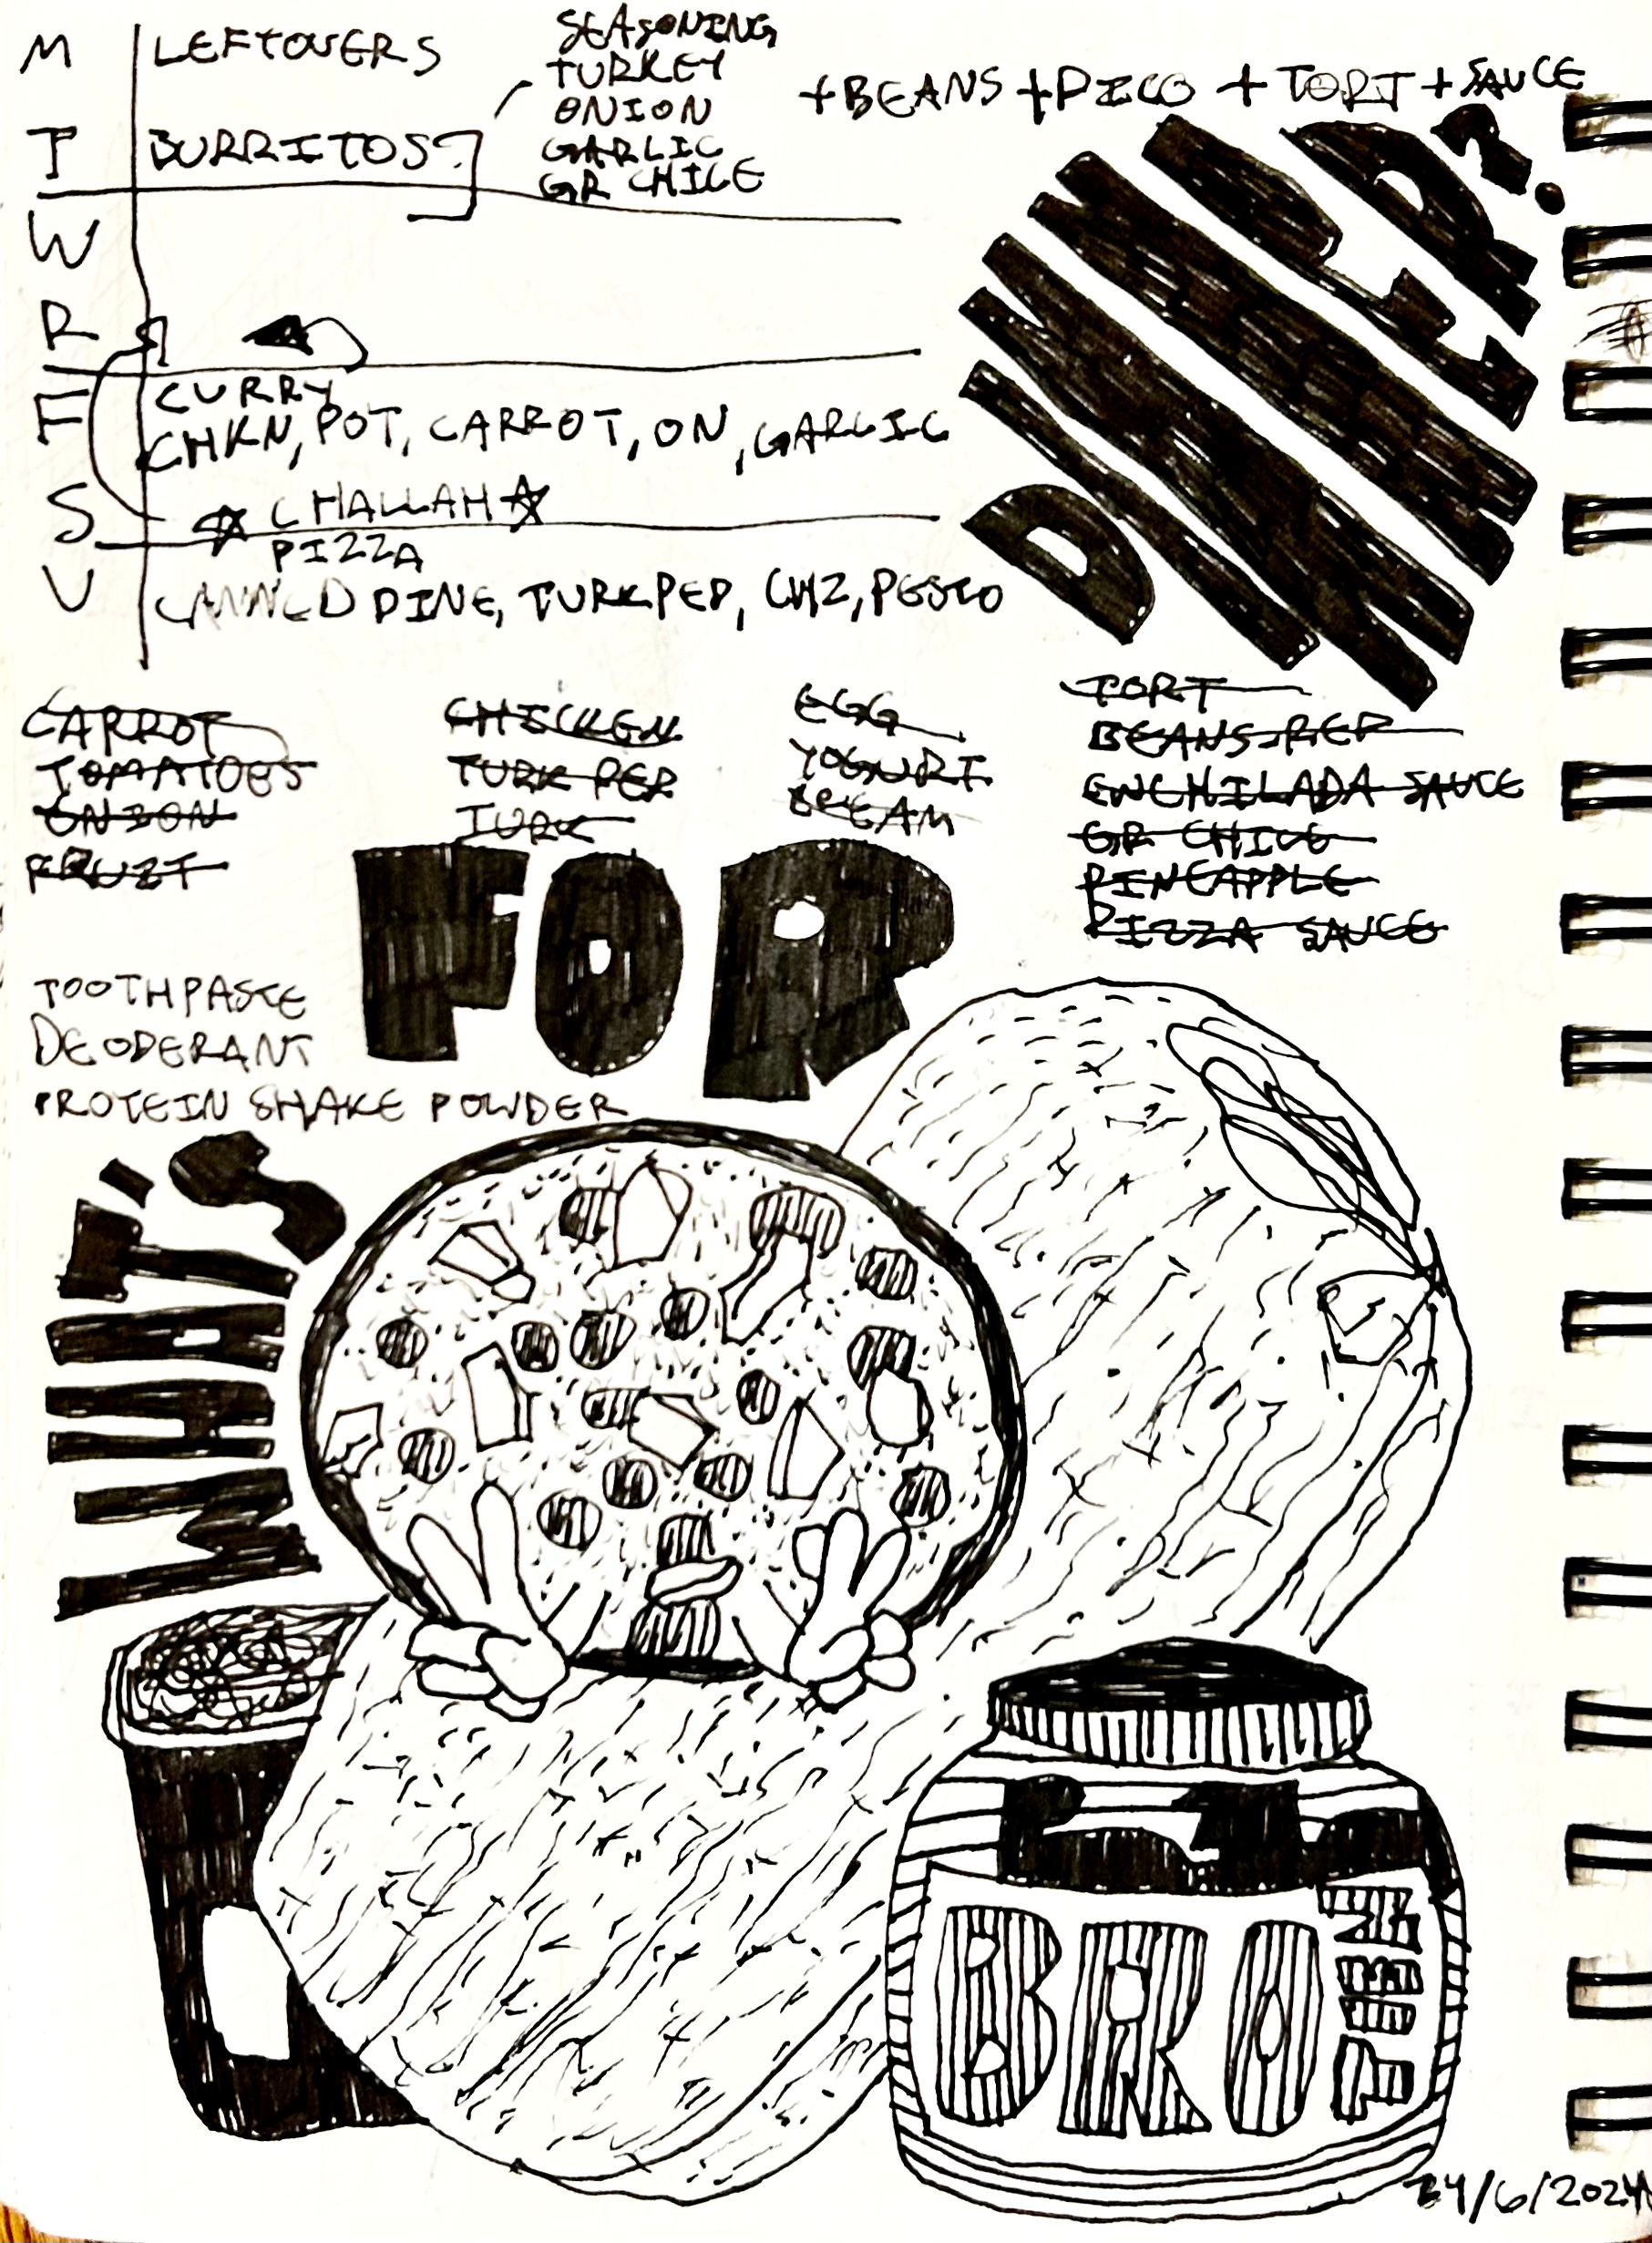 M LEFTOVERS
SEASONING
TURKEY
ONION
GARLIC
GR CHILE
+BEANS +PICO + TORT + SAUCE
T BURRITOS?
W
R
F CURRY
CHKN, POT, CARROT, ON, GARLIC
S CHALLAH
PIZZA
U CANNED PINE, TURKPEP, CHZ, PESTO
WHAT'S
FOR
DINNER?
CARROT
TOMATOES
ONION
FRUIT
CHICKEN
TURK PEP
TURK
EGG
YOGURT
CREAM
TORT
BEANS REF
ENCHILADA SAUCE
GR CHILE
PINEAPPLE
PIZZA SAUCE
TOOTHPASTE
DEODERANT
PROTEIN SHAKE POWDER
BRO
TEIN
24/6/2024